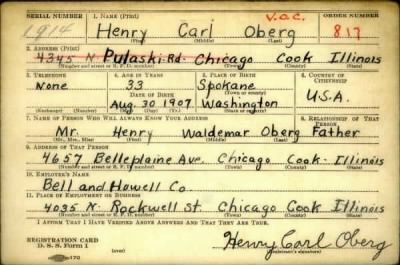 SERIAL NUMBER 1. NAME (Print) V.O.C. ORDER NUMBER
1914 Henry Carl Oberg 817
(First) (Middle) (Last)
2. ADDRESS (Print)
4345 N. Pulaski Rd. Chicago Cook Illinois
(Number and street or R. F. D. number) (Town) (County) (State)
3. TELEPHONE 4. AGE IN YEARS 5. PLACE OF BIRTH 6. COUNTRY OF CITIZENSHIP
None 33 Spokane
DATE OF BIRTH (Town or county) U.S.A.
Aug. 30 1907 Washington
(Exchange) (Number) (Mo.) (Day) (Yr.) (State or country)
7. NAME OF PERSON WHO WILL ALWAYS KNOW YOUR ADDRESS 8. RELATIONSHIP OF THAT PERSON
Mr. Henry Waldemar Oberg Father
(Mr., Mrs., Miss) (First) (Middle) (Last)
9. ADDRESS OF THAT PERSON
4657 Belleplaine Ave. Chicago Cook Illinois
(Number and street or R. F. D. number) (Town) (County) (State)
10. EMPLOYER'S NAME
Bell and Howell Co.
11. PLACE OF EMPLOYMENT OR BUSINESS
4035 N. Rockwell St. Chicago Cook Illinois
(Number and street or R. F. D. number) (Town) (County) (State)
I AFFIRM THAT I HAVE VERIFIED ABOVE ANSWERS AND THAT THEY ARE TRUE.
REGISTRATION CARD
D. S. S. Form 1 (over) Henry Carl Oberg
(Registrant's signature)